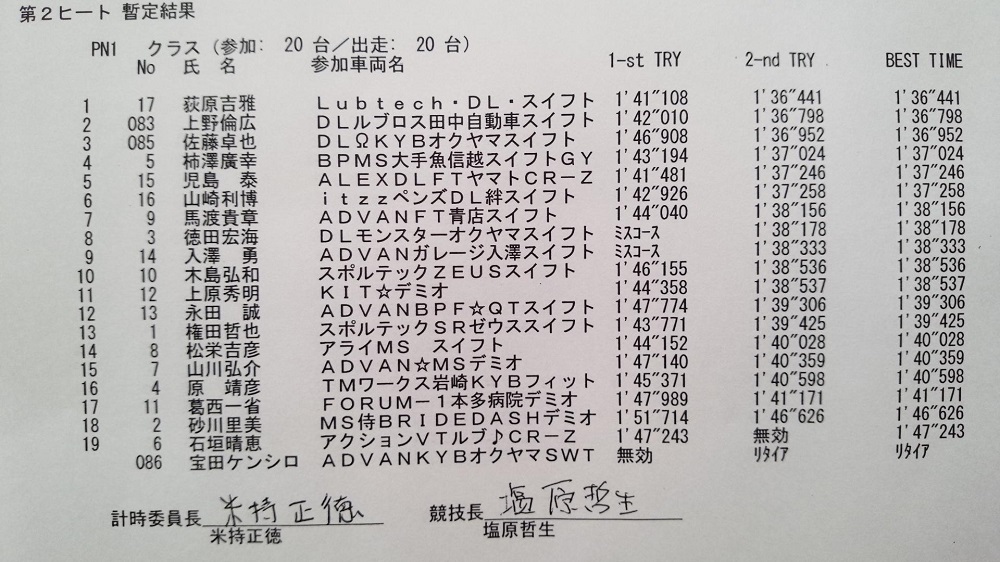 第2ヒート 暫定結果
PN1 クラス (参加: 20 台／出走: 20 台)
No 氏 名 参加車両名 1-st TRY 2-nd TRY BEST TIME
1 17 荻原吉雅 Ｌｕｂｔｅｃｈ・ＤＬ・スイフト 1'41"108 1'36"441 1'36"441
2 083 上野倫広 ＤＬルブロス田中自動車スイフト 1'42"010 1'36"798 1'36"798
3 085 佐藤卓也 ＤＬΩＫＹＢオクヤマスイフト 1'46"908 1'36"952 1'36"952
4 5 柿澤廣幸 ＢＰＭＳ大手魚信越スイフトＧＹ 1'43"194 1'37"024 1'37"024
5 15 児島　泰 ＡＬＥＸＤＬＦＴヤマトＣＲ－Ｚ 1'41"481 1'37"246 1'37"246
6 16 山崎利博 ｉｔｚｚペンズＤＬ絆スイフト 1'42"926 1'37"258 1'37"258
7 9 馬渡貴章 ＡＤＶＡＮＦＴ青店スイフト 1'44"040 1'38"156 1'38"156
8 3 徳田宏海 ＤＬモンスターオクヤマスイフト ﾐｽｺｰｽ 1'38"178 1'38"178
9 14 入澤　勇 ＡＤＶＡＮガレージ入澤スイフト ﾐｽｺｰｽ 1'38"333 1'38"333
10 10 木島弘和 スポルテックＺＥＵＳスイフト 1'46"155 1'38"536 1'38"536
11 12 上原秀明 ＫＩＴ☆デミオ 1'44"358 1'38"537 1'38"537
12 13 永田　誠 ＡＤＶＡＮＢＰＦ☆ＱＴスイフト 1'47"774 1'39"306 1'39"306
13 1 権田哲也 スポルテックＳＲゼウススイフト 1'43"771 1'39"425 1'39"425
14 8 松栄吉彦 アライＭＳ　スイフト 1'44"152 1'40"028 1'40"028
15 7 山川弘介 ＡＤＶＡＮ☆ＭＳデミオ 1'47"140 1'40"359 1'40"359
16 4 原　靖彦 ＴＭワークス岩崎ＫＹＢフィット 1'45"371 1'40"598 1'40"598
17 11 葛西一省 ＦＯＲＵＭ－１本多病院デミオ 1'47"989 1'41"171 1'41"171
18 2 砂川里美 ＭＳ侍ＢＲＩＤＥＤＡＳＨデミオ 1'51"714 1'46"626 1'46"626
19 6 石垣晴恵 アクションＶＴルブ♪ＣＲ－Ｚ 1'47"243 無効 1'47"243
086 宝田ケンシロ ＡＤＶＡＮＫＹＢオクヤマＳＷＴ 無効 ﾘﾀｲｱ ﾘﾀｲｱ
計時委員長 米持正徳 競技長 塩原哲生
米持正徳 塩原哲生